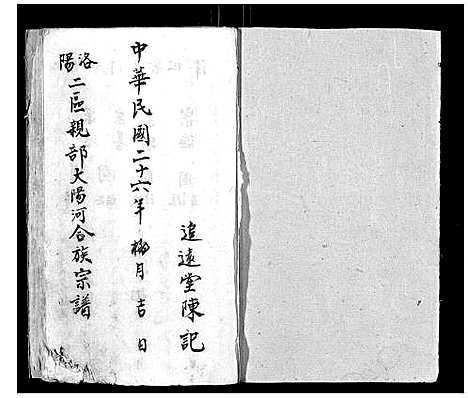 追遠堂陳記
中華民國二十六年梅月吉日
洛陽二區親部大陽河合族宗譜